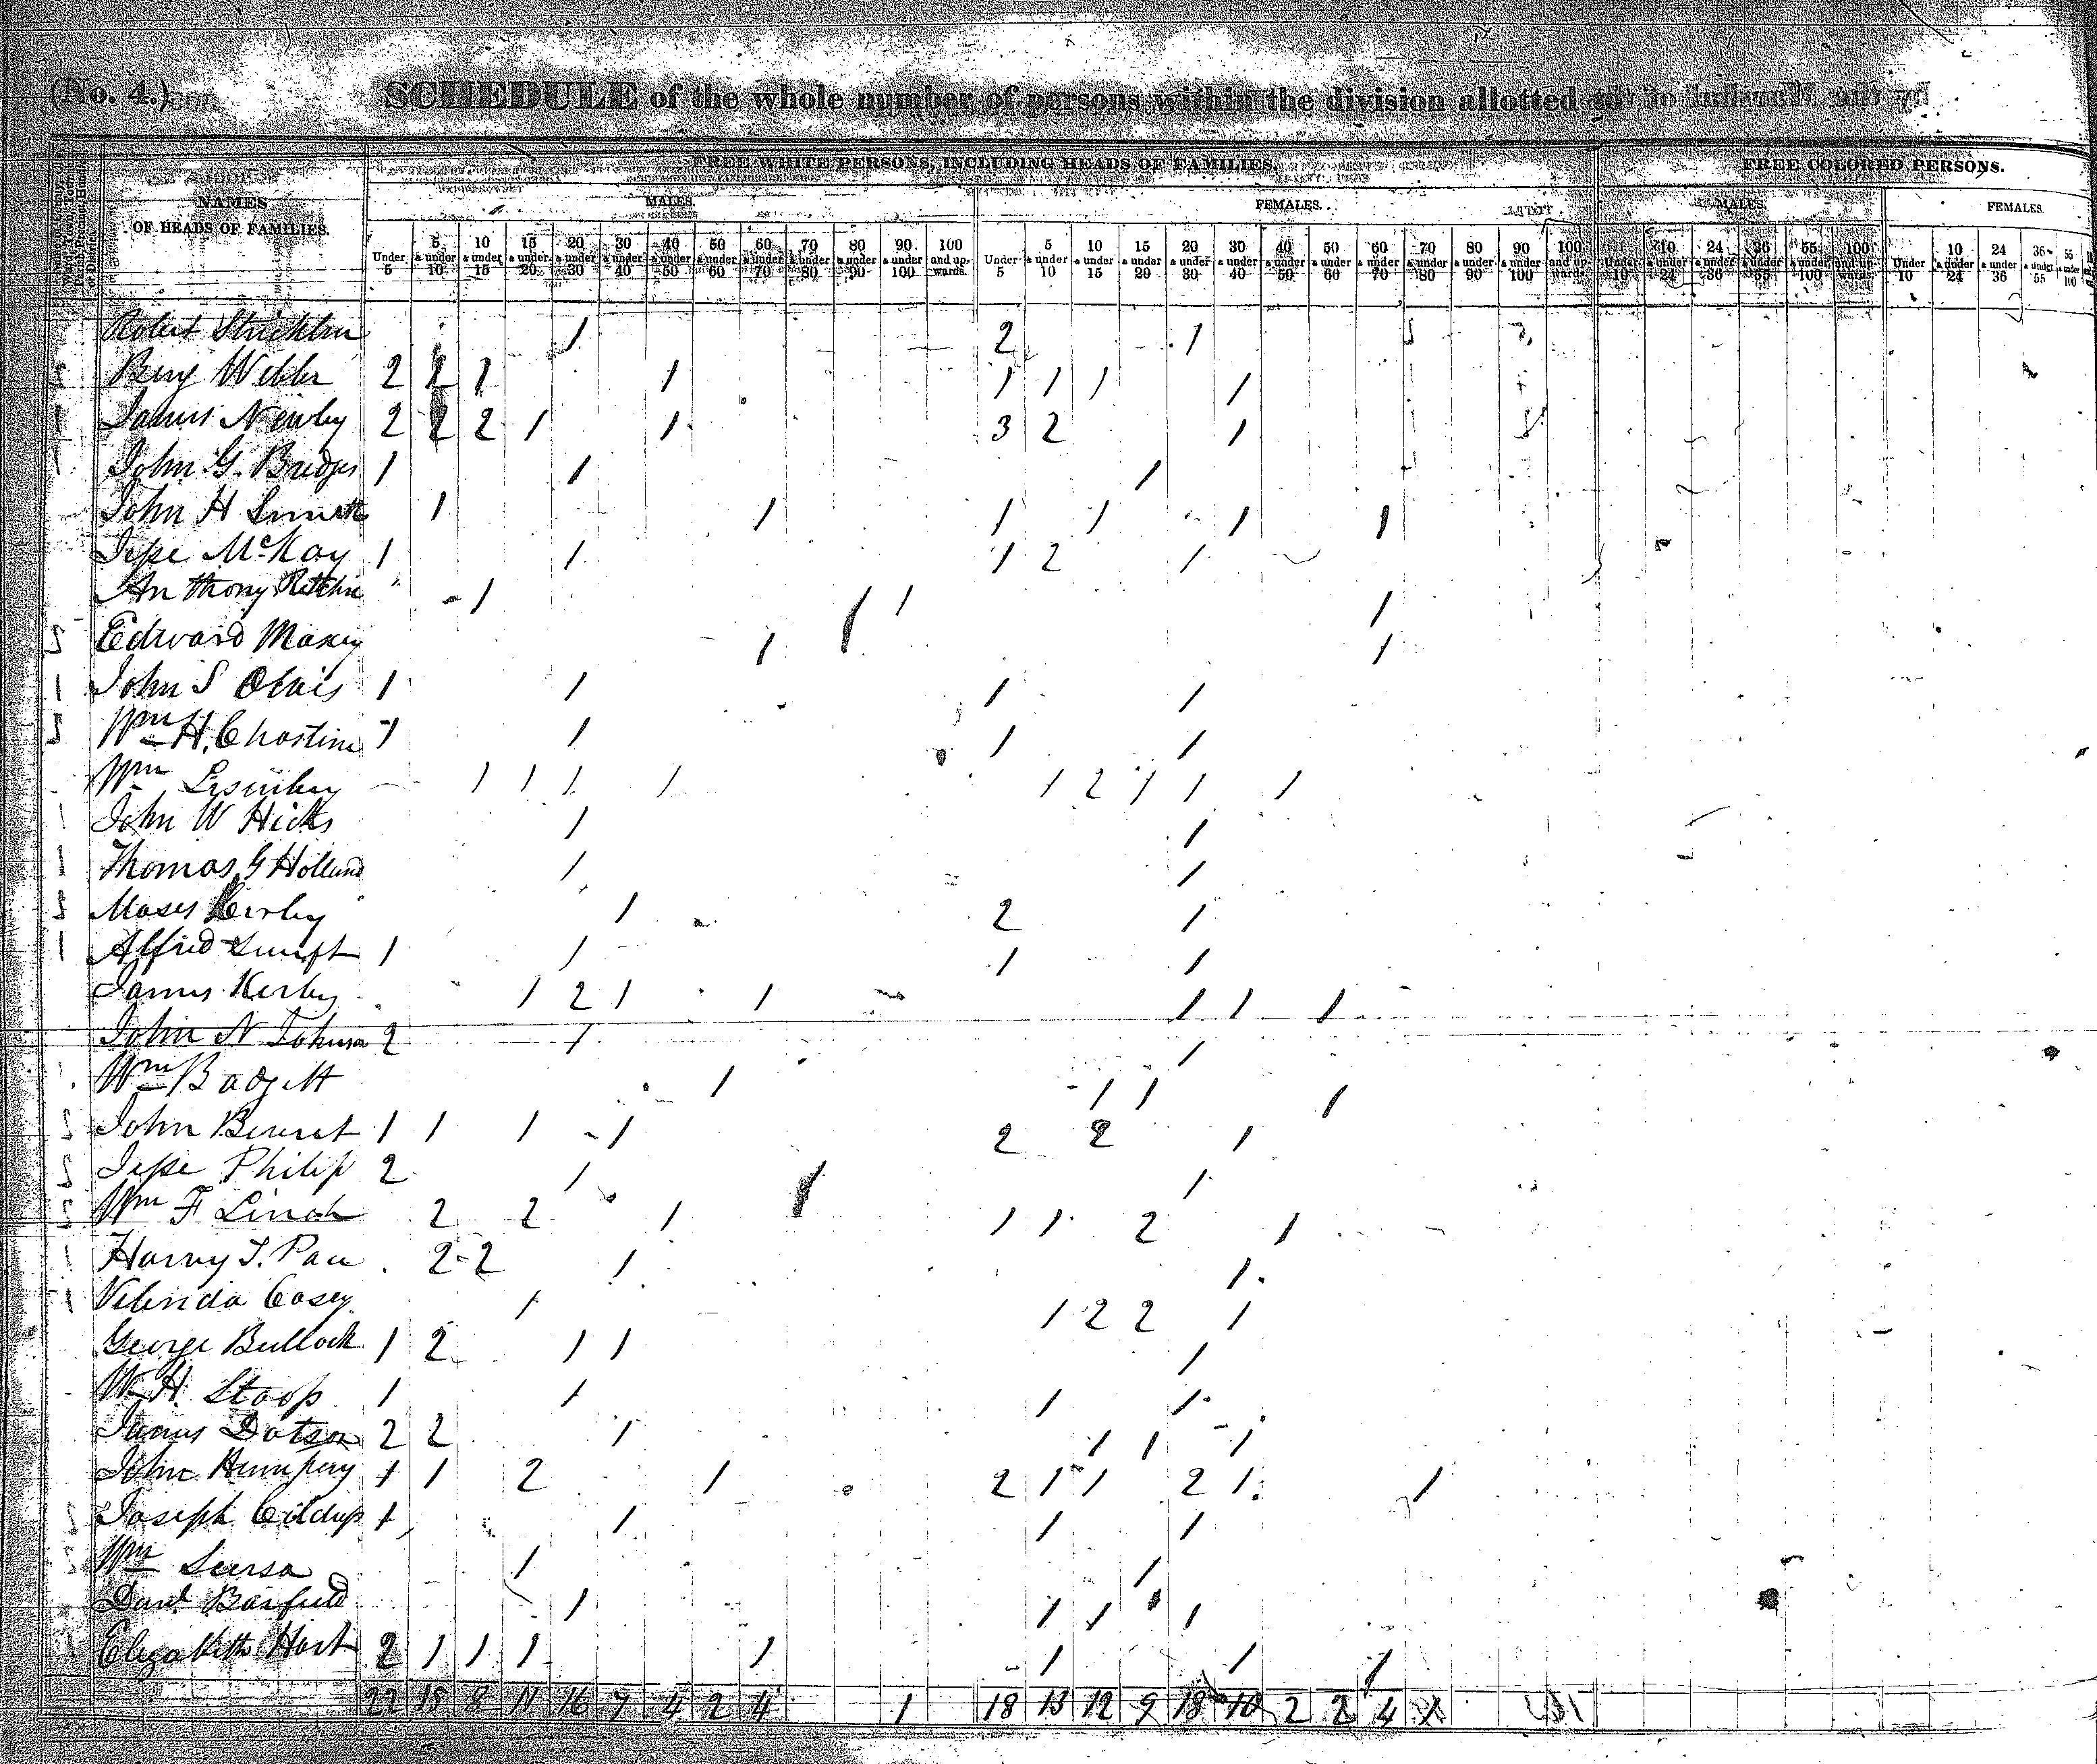 (No. 4.) SCHEDULE of the whole number of persons within the division allotted to
FREE WHITE PERSONS, INCLUDING HEADS OF FAMILIES. FREE COLORED PERSONS.
NAMES OF HEADS OF FAMILIES. MALES. FEMALES. MALES. FEMALES.
Under 5 5 & under 10 10 & under 15 15 & under 20 20 & under 30 30 & under 40 40 & under 50 50 & under 60 60 & under 70 70 & under 80 80 & under 90 90 & under 100 100 and upwards. Under 5 5 & under 10 10 & under 15 15 & under 20 20 & under 30 30 & under 40 40 & under 50 50 & under 60 60 & under 70 70 & under 80 80 & under 90 90 & under 100 100 and upwards. Under 10 10 & under 24 24 & under 36 36 & under 55 55 & under 100 100 and upwards Under 10 10 & under 24 24 & under 36 36 & under 55 55 & under 100
Robert 1 2 1
Webb 2 2 1 1 1 1 1 1
James Newby 2 2 2 1 1 3 2 1
John G. Bridges 1 1 1
John H Smith 1 1 1 1 1 1
Jesse McKay 1 1 1 2 1
Anthony 1 1 1
Edward Maxey 1 1
John S 1 1 1 1
Wm H. Chastine 1 1 1 1
Wm 1 1 1 1 1 2 1 1 1
John W Hicks 1 1
Thomas G Holland 1 1
Moses Kerby 1 2 1
Alfred Swift 1 1 1 1
James Kerby 1 2 1 1 1 1 1
John N Johnson 2 1 1
Wm Badgett 1 1 1 1
John 1 1 1 1 2 2 1
Jesse Philip 2 1 1
Wm F Linch 2 2 1 1 1 2 1
Harvy T. Pace 2 2 1 1
Casey 1 1 2 2 1
George Bullock 1 2 1 1 1
W H. Stoop 1 1 1 1
James Dotson 2 2 1 1 1 1
John Humphry 1 1 2 1 2 1 1 2 1 1
Joseph 1 1 1 1
Wm 1 1
Danl Barfield 1 1 1 1
Elizabeth Hart 2 1 1 1 1 1 1 1
22 15 8 11 16 9 4 2 4 1 18 13 12 9 18 10 2 2 4 1